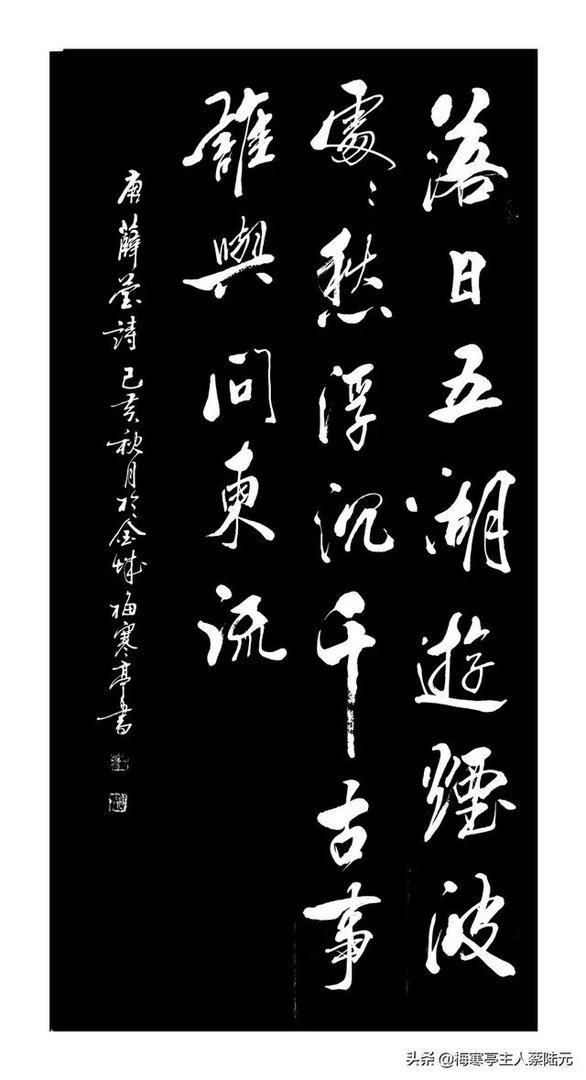 落日五湖遊煙波
處〻愁浮沉千古事
誰與問東流
唐薛瑩詩己亥秋月於金城梅寒亭書
头条 @梅寒亭主人蔡陆元